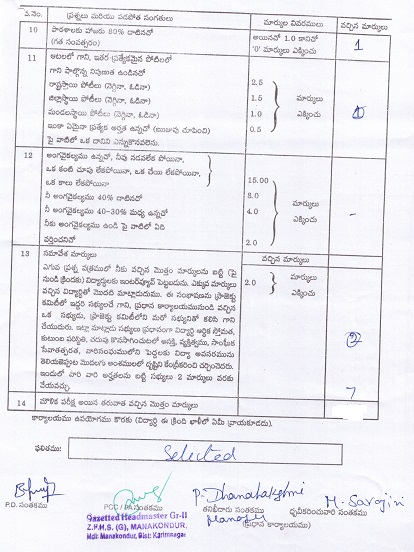 వ.నెం. ప్రశ్నలు మరియు పదపోత సంగతులు మార్కుల వివరములు వచ్చిన మార్కులు
10 పాఠశాలకు హాజరు 80% దాటినచో అయినచో 1.0 కానిచో 1
(గత సంవత్సరం) '0' మార్కులు ఎక్కించు
11 ఆటలలో గాని, ఇతర ప్రత్యేకమైన పోటీలలో
గాని పాల్గొన్న నిపుణత ఉండినచో
రాష్ట్రస్థాయి పోటీలు (నెగ్గినా, ఓడినా) 2.5
జిల్లాస్థాయి పోటీలు (నెగ్గినా, ఓడినా) 1.5 మార్కులు
మండలస్థాయి పోటీలు (నెగ్గినా, ఓడినా) 1.0 ఎక్కించు
ఇంకా ఏమైనా ప్రత్యేక అర్హత ఉన్నచో (ఋజువు చూపించి) 0.5
పై వాటిలో ఒక దానిని ఎన్నుకొనవలెను.
12 అంగవైకల్యము ఉన్నచో, నీవు నడవలేక పోయినా,
ఒక కంటి చూపు లేకపోయినా, ఒక చేయి లేకపోయినా 15.00
ఒక కాలు లేకపోయినా
నీ అంగవైకల్యము 40% దాటినచో 8.0 మార్కులు
నీ అంగవైకల్యము 40-30% మధ్య ఉన్నచో 4.0 ఎక్కించు -
నీకు అంగవైకల్యము ఉండి పై వాటిలో ఏది
వర్తించనిచో 2.0
13 సమావేశ మార్కులు వచ్చిన మార్కులు
ఎగువ ప్రశ్న పత్రములో నీకు వచ్చిన మొత్తం మార్కులను బట్టి (పై
నుండి క్రిందకు) విద్యార్థులకు ఇంటర్వ్యూకై పెట్టబడును. ఎక్కువ మార్కులు 2.0 మార్కులు
వచ్చిన విద్యార్థితో మొదటి మాట్లాడుదుము. ఈ సంభాషణను ప్రాజెక్టు ఎక్కించు
కమిటీలో ఇద్దరి సభ్యులచే గాని, ప్రధాన కార్యాలయమునుండి వచ్చిన
ఒక సభ్యుడు, ప్రాజెక్టు కమిటీలోని మరో సభ్యునితో కలిసి గాని
చేయుదురు. ఇట్లా మాట్లాడు సభ్యులు ప్రధానంగా విద్యార్థి ఆర్థిక స్తోమత, 2
కుటుంబ పరిస్థితి, చదువు కొనసాగించుటలో ఆసక్తి, వ్యక్తిత్వము, సాంఘిక
ఇందులో వారి వారి అర్హతలను బట్టి సభ్యులు 2 మార్కులు వరకు
వేయవచ్చు. 7
14 మౌలిక పరీక్ష అయిన తరువాత వచ్చిన మొత్తం మార్కులు
కార్యాలయము ఉపయోగము కొరకు (విద్యార్థి ఈ క్రింది ఖాళీలో ఏమీ వ్రాయకూడదు).
ఫలితము: Selected
P. Dhanalakshmi M. Sarojini
P.D. సంతకము తనిఖీదారు సంతకము ధృవీకరించువారి సంతకము
Gazetted Headmaster Gr-II (ప్రధాన కార్యాలయము)
Z.P.H.S. (G), MANAKONDUR,
Mdl: Manakondur, Dist: Karimnagar